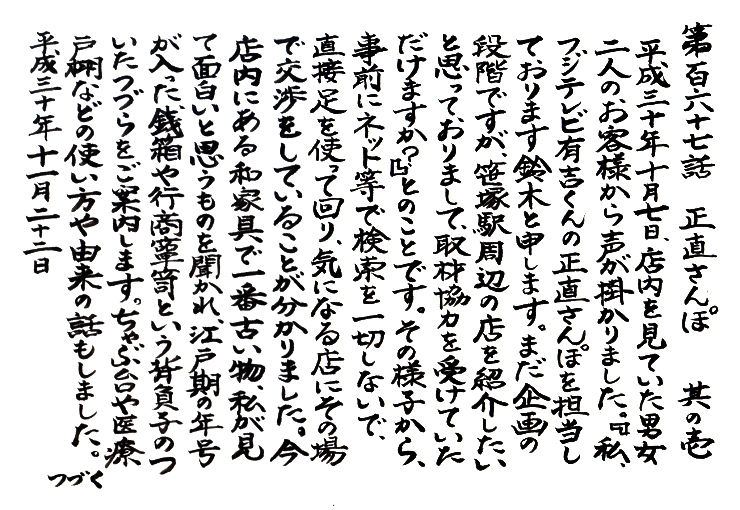 第百六十七話 正直さんぽ 其の壱
平成三十年十月七日、店内を見ていた男女
二人のお客様から声が掛かりました。『私、
フジテレビ有吉くんの正直さんぽを担当し
ております鈴木と申します。まだ企画の
段階ですが、笹塚駅周辺の店を紹介したい
と思っておりまして、取材協力を受けていた
だけますか?』とのことです。その様子から、
事前にネット等で検索を一切しないで、
直接足を使って回り、気になる店にその場
で交渉をしていることが分かりました。今
店内にある和家具で一番古い物、私が見
て面白いと思うものを聞かれ、江戸期の年号
が入った銭箱や行商箪笥という背負子のつ
いたつづらをご案内します。ちゃぶ台や医療
戸棚などの使い方や由来の話もしました。
つづく
平成三十年十一月二十二日